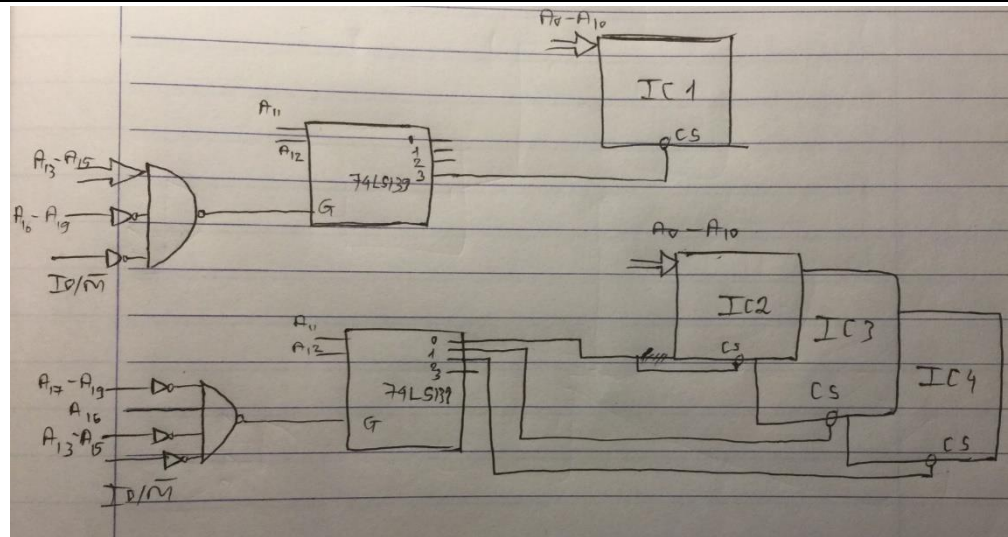 A0-A10
IC1
CS
A11
A12
0
1
2
3
74LS139
G
A13-A15
A16-A19
IO/M̅
A0-A10
IC2
CS
IC3
CS
IC4
CS
A11
A12
0
1
2
3
74LS139
G
A17-A19
A16
A13-A15
IO/M̅